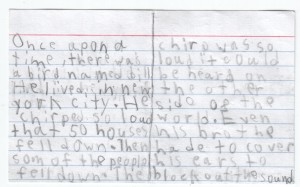 Once apon a
time, there was
a bird named bill
He lived in new
york city. He
chirped so loud
that 50 houses
fell down. Then
som of the people
fell down. the
chirp was so
loud it could
be heard on
the other
side of the
world. Even
his brothe
hade to cover
his ears to
block out the sound